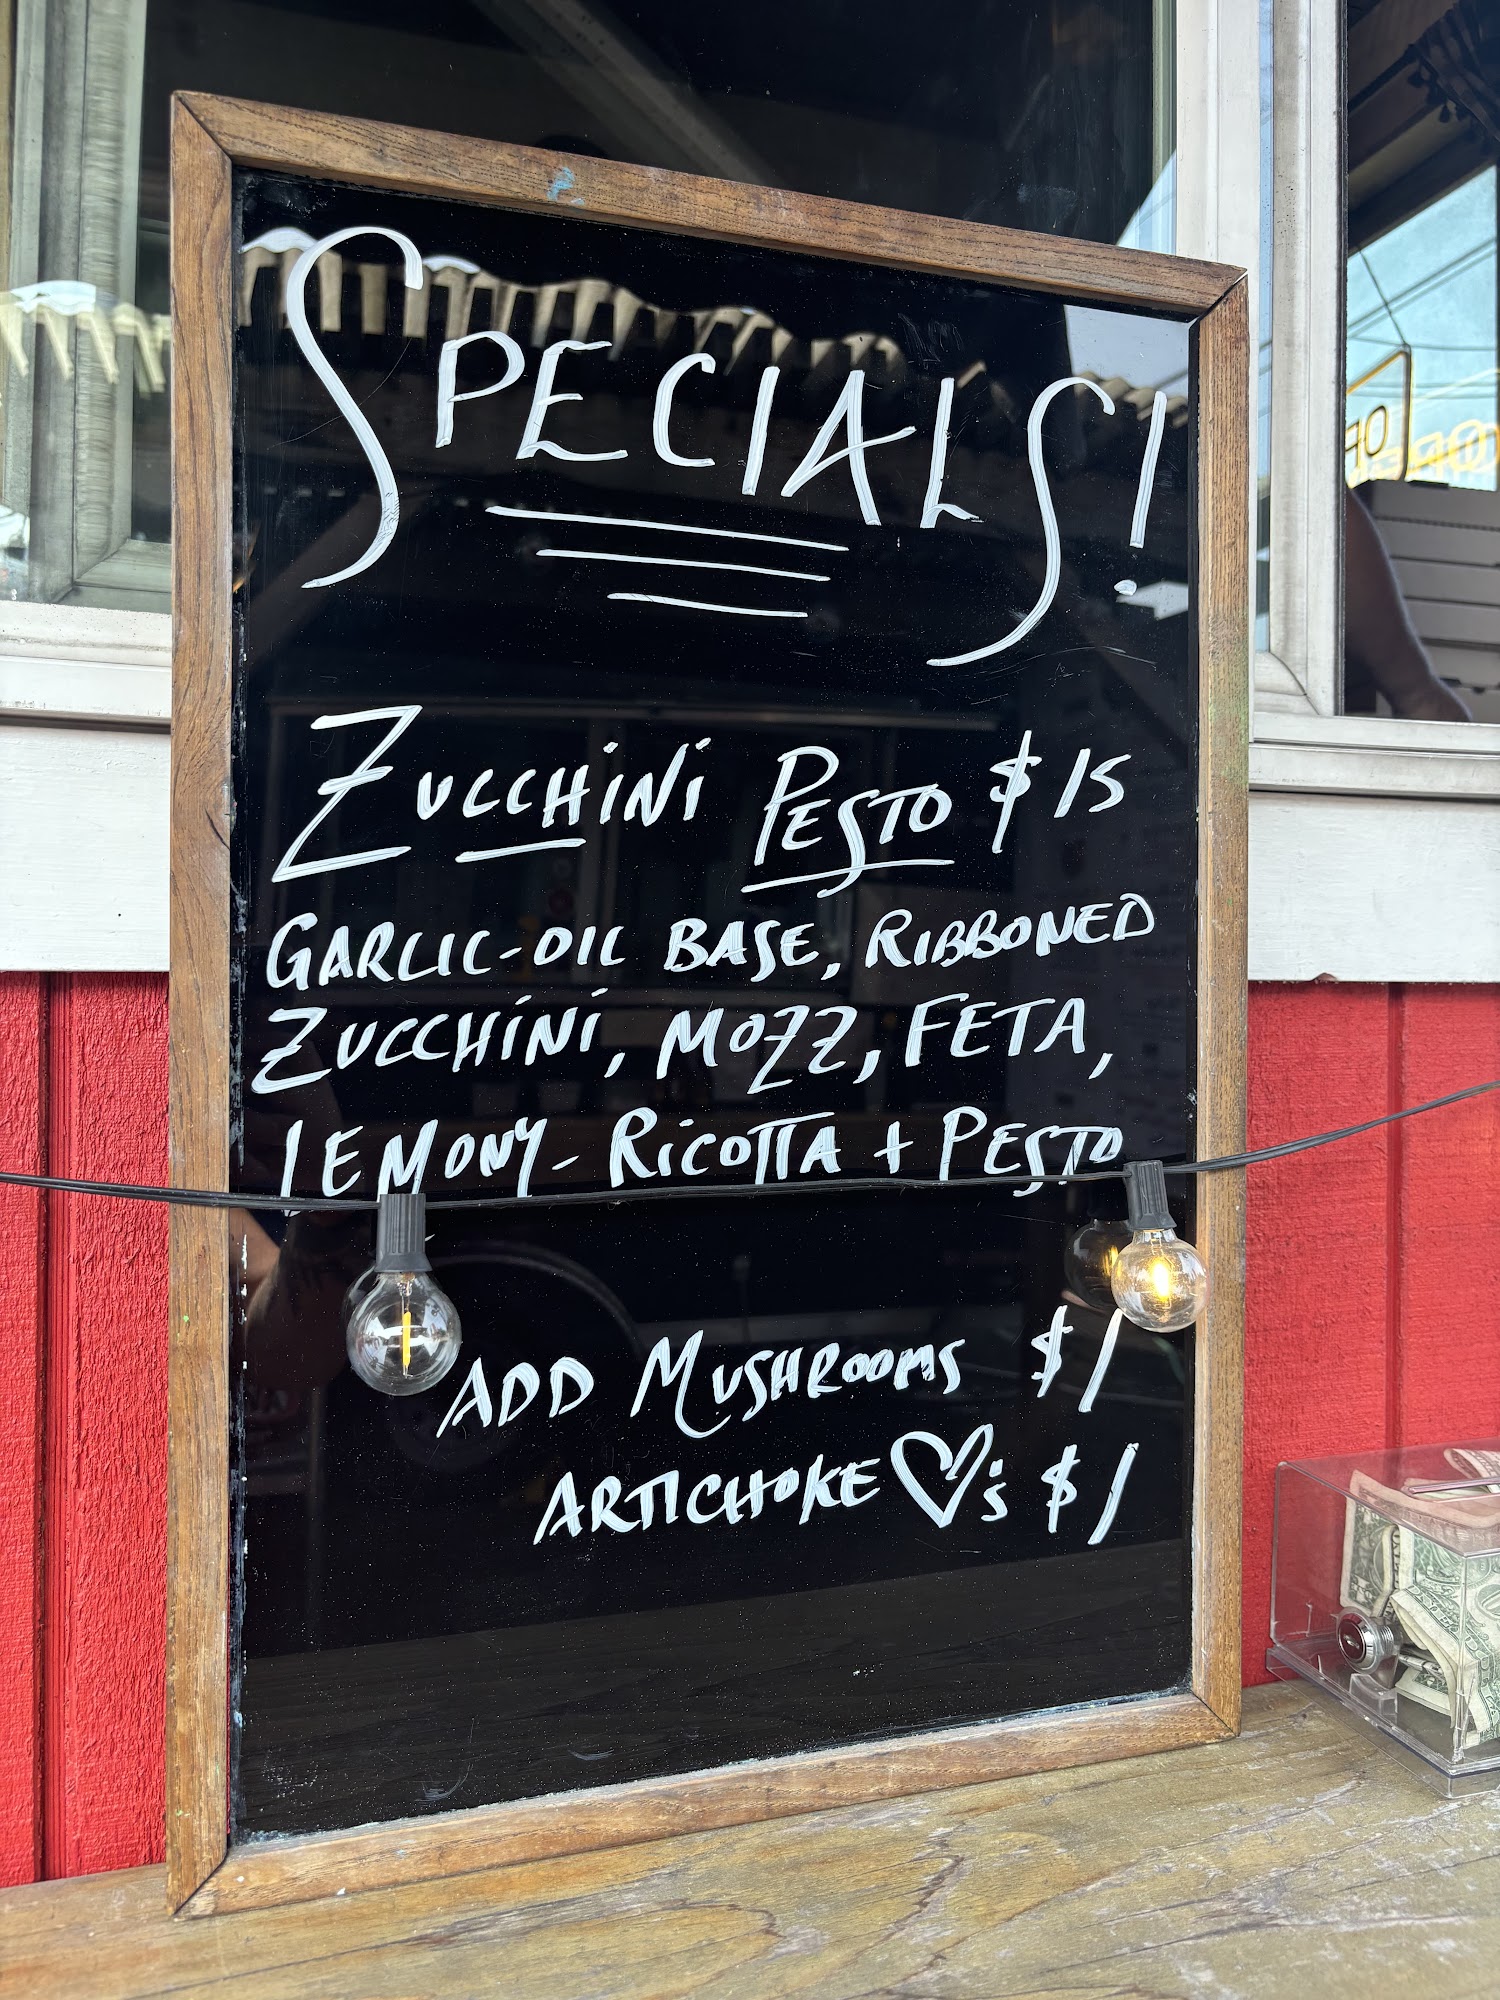 SPECIALS!
ZUCCHINI PESTO $15
GARLIC-OIL BASE, RIBBONED
ZUCCHINI, MOZZ, FETA,
LEMONY-RICOTTA + PESTO
ADD MUSHROOMS $1
ARTICHOKE ♡'s $1